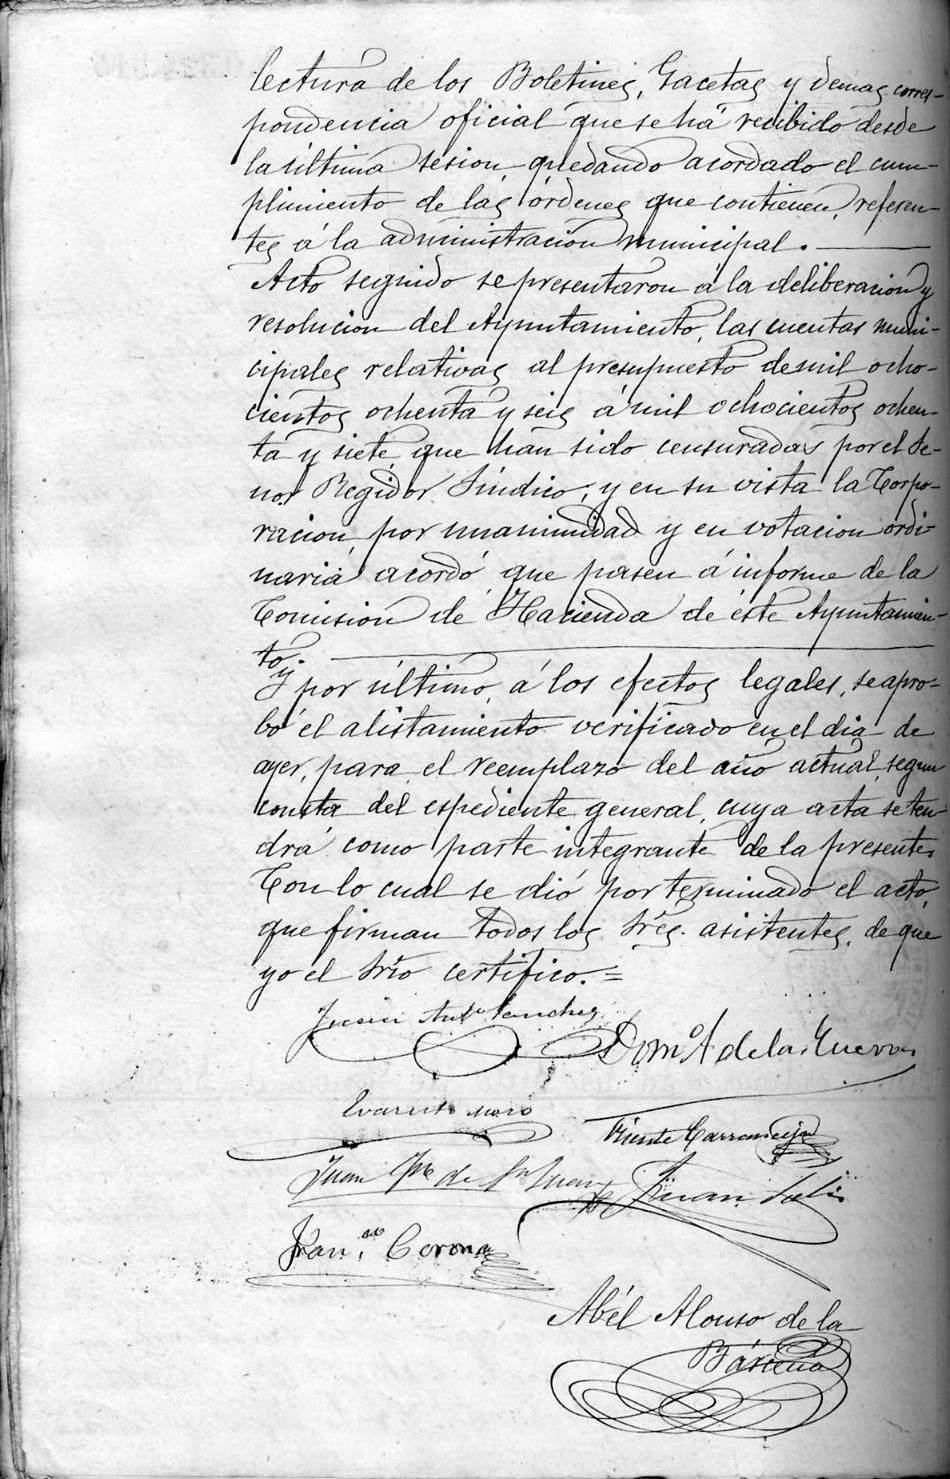 lectura de los Boletines, Gacetas y demas corres-
pondencia oficial que se há recibido desde
la última sesion, quedando acordado el cum-
plimiento de las órdenes que contienen, referen-
tes á la administracion municipal. —
Acto seguido se presentaron á la deliberacion y
resolucion del Ayuntamiento, las cuentas muni-
cipales relativas al presupuesto de mil ocho-
cientos ochenta y seis á mil ochocientos ochen-
ta y siete, que han sido censuradas por el Se-
ñor Regidor Síndico; y en su vista la Corpo-
racion, por unanimidad y en votacion ordi-
naria acordó que pasen á informe de la
Comision de Hacienda de éste Ayuntamien-
to, —
Y por último, á los efectos legales, se apro-
bó el alistamiento verificado en el dia de
ayer, para el reemplazo del año actual, segun
consta del espediente general, cuya acta se ten
drá como parte integrante de la presente.
Con lo cual se dió por terminado el acto,
que firman todos los Sres. asistentes, de que
yo el Srio certifico. =
Sanchez
Domº A de la Cueva
Evaristo
Vicente
Juan de Juan
Juan
Fran.co Corona
Abél Alonso de la
Bárcena